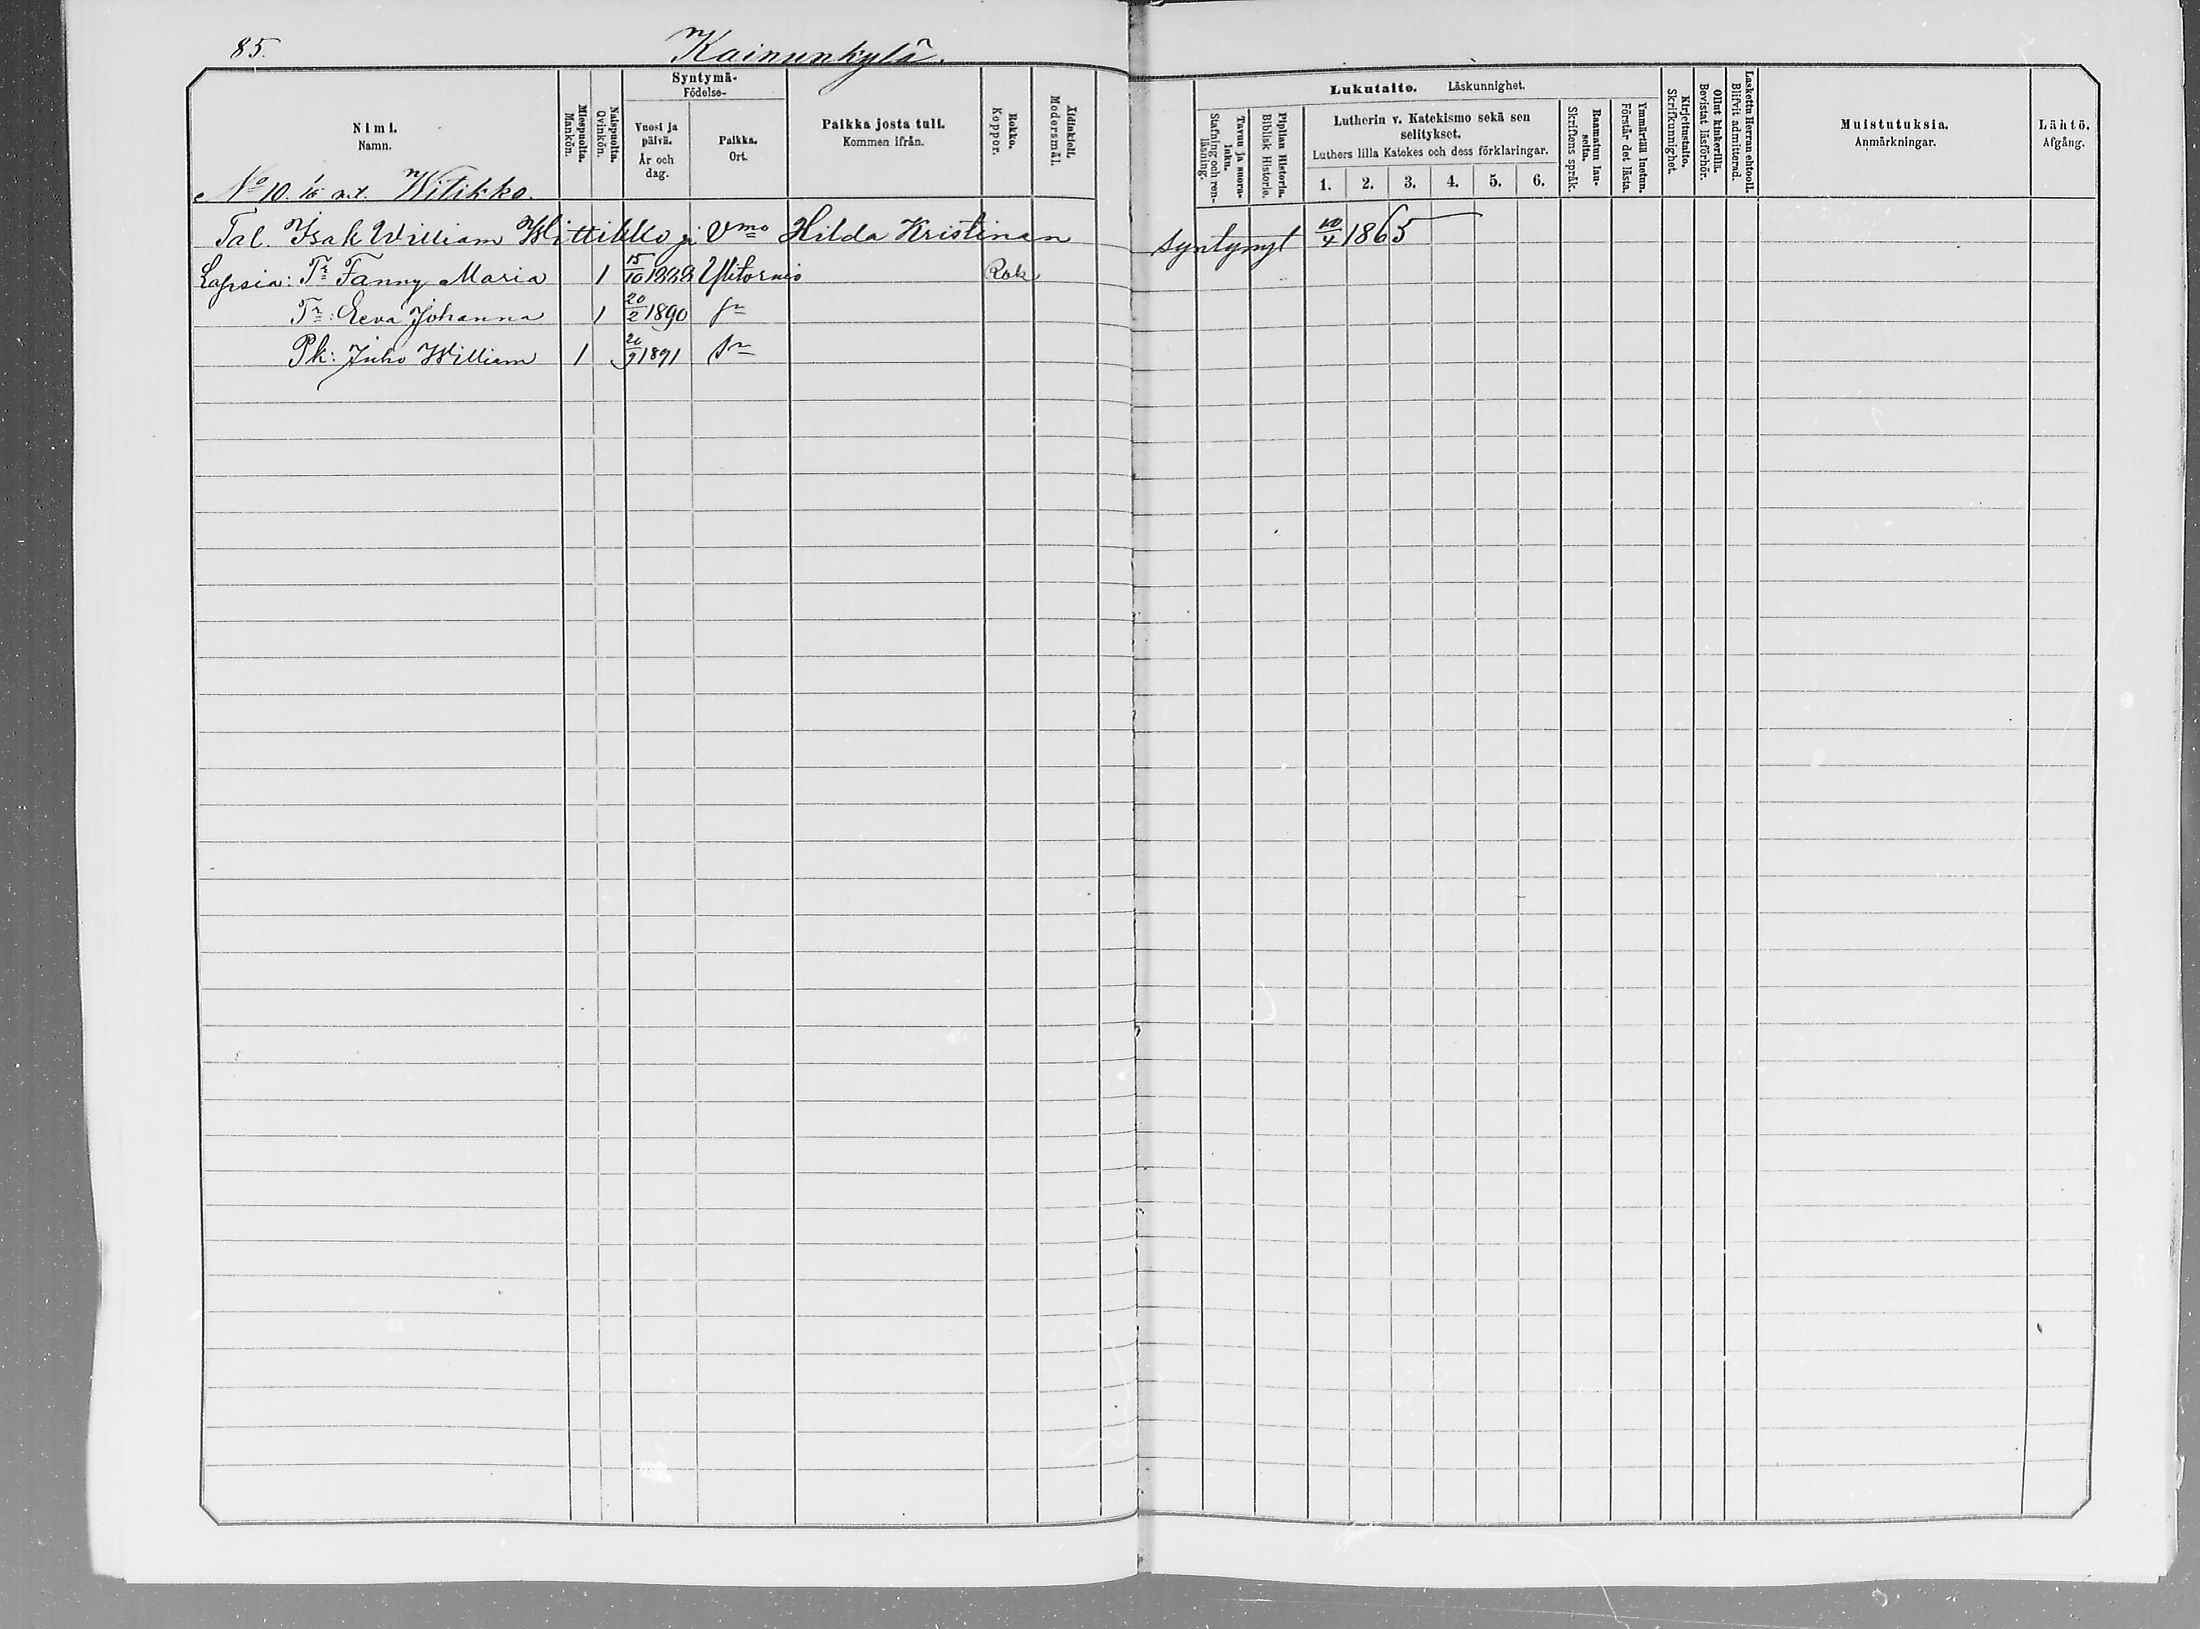 85.
Kainunkylä.
Nimi.
Namn.
Miespuolia.
Mankön.
Naispuolia.
Qvinkön.
Syntymä-
Födelse-
Vuosi ja
päivä.
År och
dag.
Paikka.
Ort.
Paikka josta tuli.
Kommen ifrån.
Rokko.
Koppor.
Äidinkieli.
Modersmål.
Lukutaito. Läskunnighet.
Tavuu ja suora-
luku.
Stafning och ren-
läsning.
Piplian Historia.
Biblisk Historie.
Lutherin v. Katekismo sekä sen
selitykset.
Luthers lilla Katekes och dess förklaringar.
1. 2. 3. 4. 5. 6.
Raamatun lau-
seita.
Skriftens språk.
Ymmärtää luetun.
Förstår det lästa.
Kirjoitustaito.
Skrifkunnighet.
Ollut kinkerillä.
Bevistat läsförhör.
Laskettu Herran ehtool.
Blifvit admitterad.
Muistutuksia.
Anmärkningar.
Lähtö.
Afgång.
No 10. 1/6 m.t. Witikko.
Tal. Isak William Wittikko ja Vmo Hilda Kristinan syntynyt 10/4 1865
Lapsia: Tr Fanny Maria 1 15/10 1888 Ylitornio Rok
Tr: Eeva Johanna 1 20/2 1890 sn
Pk: Juho William 1 1891 sn